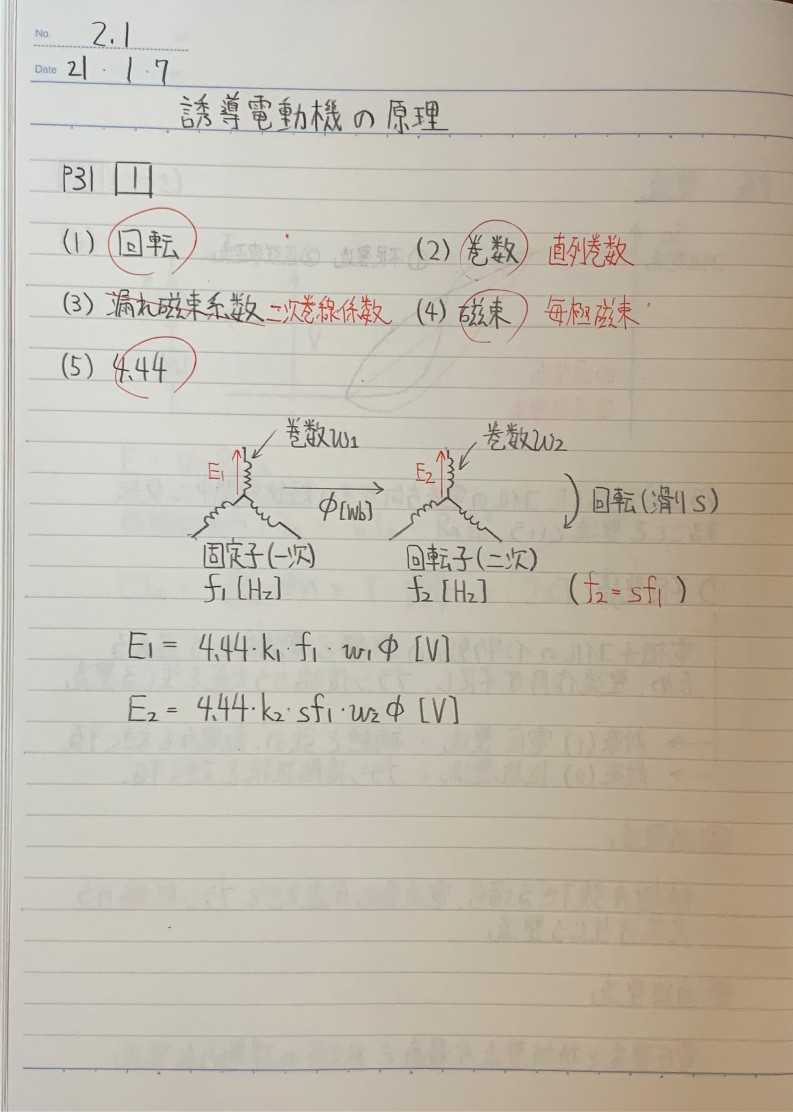 No. 2.1
Date 21・1・7
誘導電動機の原理
P31 1
(1) 回転 (2) 巻数 直列巻数
(3) 漏れ磁束系数 二次巻線係数 (4) 磁束 毎極磁束
(5) 4.44
巻数w1 巻数w2
E1 E2
φ[Wb] 回転(滑りs)
固定子(一次) 回転子(二次)
f1 [Hz] f2 [Hz] (f2=sf1)
E1= 4.44・k1・f1・w1φ [V]
E2= 4.44・k2・sf1・w2φ [V]